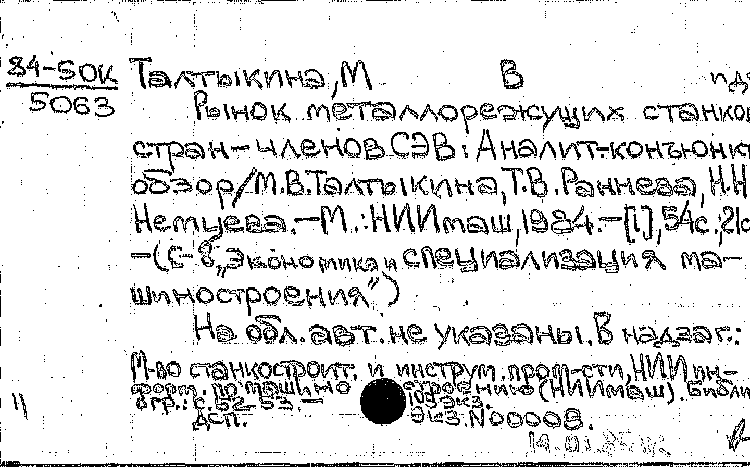 84-50К Талтыкина, М В
5063 Рынок металлорежущих станков
стран-членов СЭВ: Аналит.-конъюнкт
обзор/М.В.Талтыкина, Т.В.Раннева, Н.Н
Немцева.—М.: НИИмаш, 1984.—[1], 54с.; 21с
—(С-8 „Экономика и специализация ма-
шиностроения")
На обл. авт. не указаны. В надзаг.:
М-во станкостроит. и инструм. пром-сти, НИИ ин-
форм. по машиностроению (НИИмаш). Библи
в гр.: с. 52-53.— 109 экз.
11 ДСП. Экз. N00008.